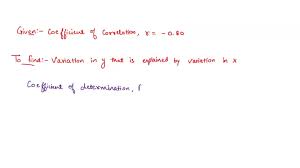 Given:- Coefficient of Correlation, r = - 0.80
To find:- Variation in y that is explained by variation in x
Coefficient of determination,